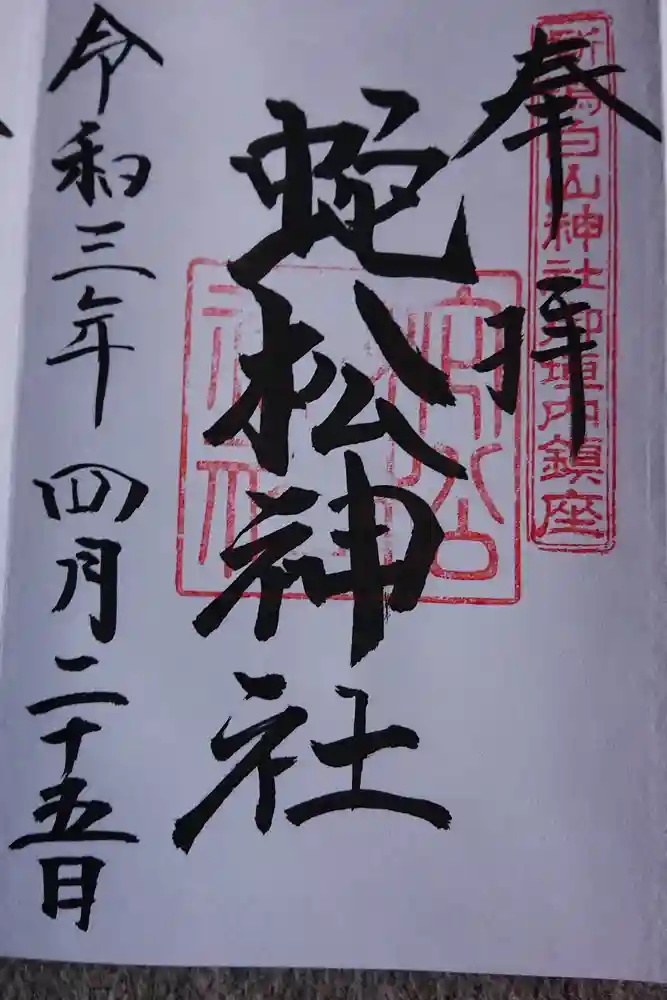 奉拝
新潟白山神社御垣内鎮座
蛇松神社
令和三年四月二十五日